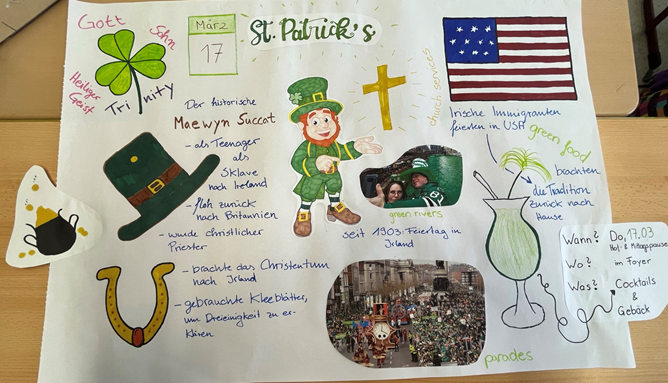 Gott
Sohn
Heiliger
Geist
Trinity
März
17
St. Patrick's
church services
Der historische
Maewyn Succat
- als Teenager
als
Sklave
nach Irland
- floh zurück
nach Britannien
- wurde christlicher
Priester
- brachte das Christentum
nach Irland
- gebrauchte Kleeblätter,
um Dreieinigkeit zu er-
klären
Irische Immigranten
feierten in USA
green food
brachten
die Tradition
zurück nach
Hause
green rivers
seit 1903: Feiertag in
Irland
parades
Wann? Do, 17.03
Hof & Mittagspause
Wo? im Foyer
Was? Cocktails
&
Gebäck